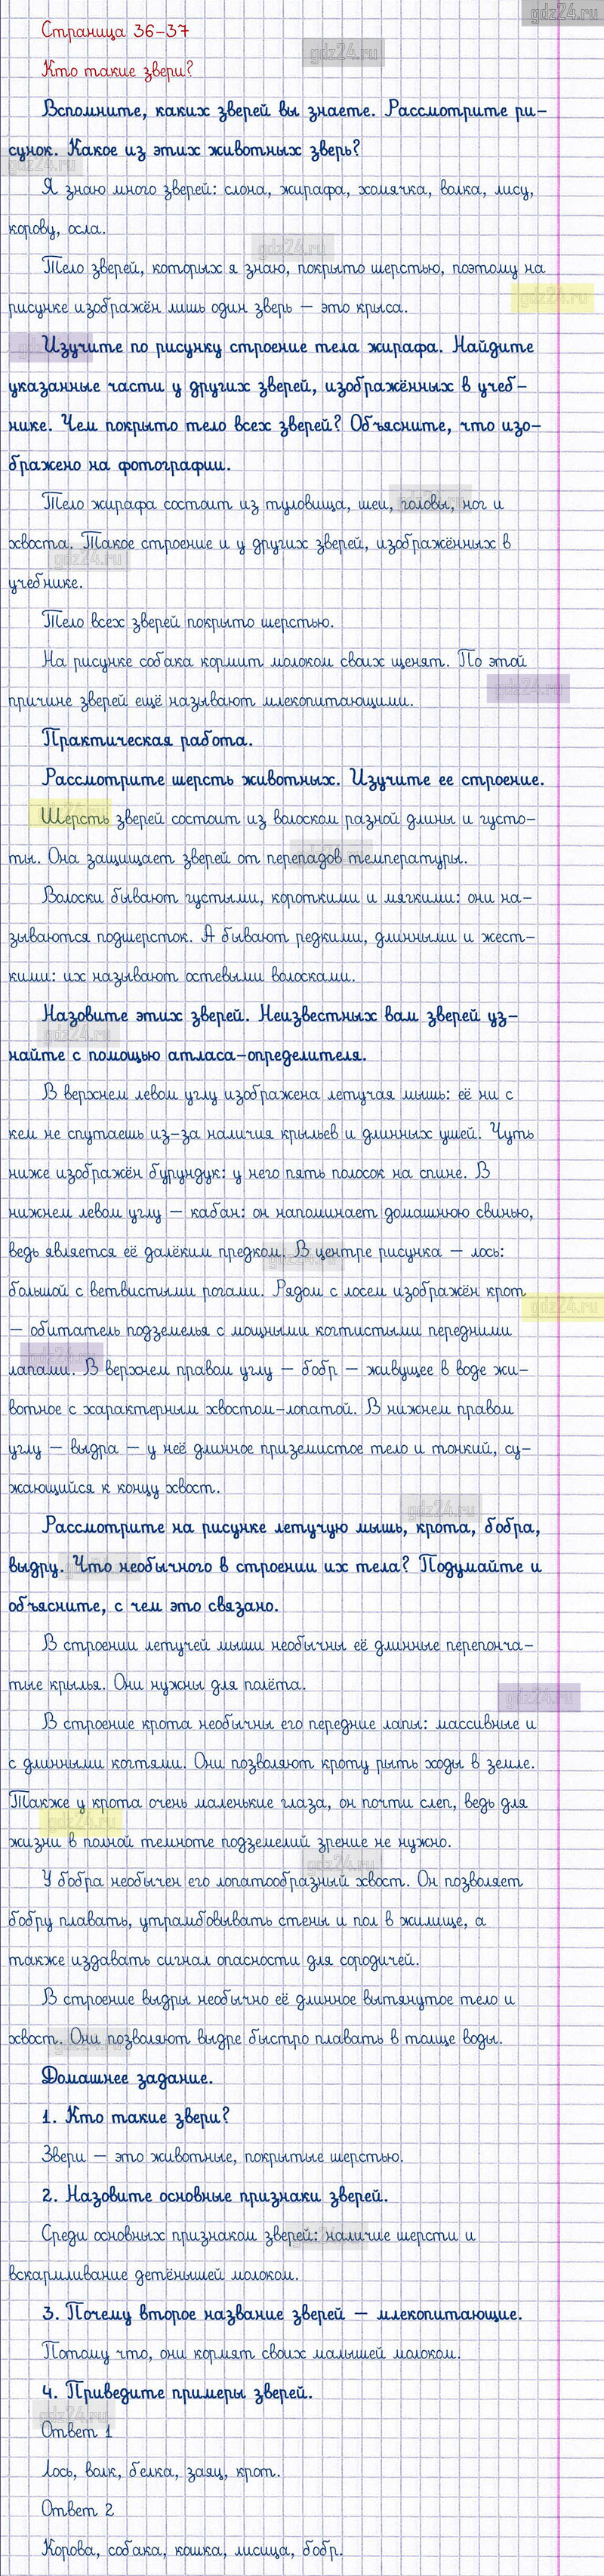 gdz24.ru
Страница 36-37
gdz24.ru
Кто такие звери?
Вспомните, каких зверей вы знаете. Рассмотрите ри-
сунок. Какое из этих животных зверь?
gdz24.ru
Я знаю много зверей: слона, жирафа, хомячка, волка, лису,
корову, осла.
gdz24.ru
Тело зверей, которых я знаю, покрыто шерстью, поэтому на
gdz24.ru
рисунке изображён лишь один зверь – это крыса.
Изучите по рисунку строение тела жирафа. Найдите
указанные части у других зверей, изображённых в учеб-
нике. Чем покрыто тело всех зверей? Объясните, что изо-
бражено на фотографии.
Тело жирафа состоит из туловища, шеи, головы, ног и
хвоста. Такое строение и у других зверей, изображённых в
gdz24.ru
учебнике.
Тело всех зверей покрыто шерстью.
На рисунке собака кормит молоком своих щенят. По этой
gdz24.ru
причине зверей ещё называют млекопитающими.
Практическая работа.
Рассмотрите шерсть животных. Изучите ее строение.
Шерсть зверей состоит из волоском разной длины и густо-
ты. Она защищает зверей от перепадов температуры.
Волоски бывают густыми, короткими и мягкими: они на-
зываются подшерсток. А бывают редкими, длинными и жест-
кими: их называют остевыми волосками.
Назовите этих зверей. Неизвестных вам зверей уз-
gdz24.ru
найте с помощью атласа-определителя.
В верхнем левом углу изображена летучая мышь: её ни с
кем не спутаешь из-за наличия крыльев и длинных ушей. Чуть
ниже изображён бурундук: у него пять полосок на спине. В
нижнем левом углу – кабан: он напоминает домашнюю свинью,
ведь является её далёким предком. В центре рисунка – лось:
большой с ветвистыми рогами. Рядом с лосем изображён крот
gdz24.ru
– обитатель подземелья с мощными когтистыми передними
лапами. В верхнем правом углу – бобр – живущее в воде жи-
вотное с характерным хвостом-лопатой. В нижнем правом
углу – выдра – у неё длинное приземистое тело и тонкий, су-
жающийся к концу хвост.
gdz24.ru
Рассмотрите на рисунке летучую мышь, крота, бобра,
выдру. Что необычного в строении их тела? Подумайте и
объясните, с чем это связано.
В строении летучей мыши необычны её длинные перепонча-
тые крылья. Они нужны для полёта.
gdz24.ru
В строение крота необычны его передние лапы: массивные и
с длинными когтями. Они позволяют кроту рыть ходы в земле.
Также у крота очень маленькие глаза, он почти слеп, ведь для
gdz24.ru
жизни в полной темноте подземелий зрение не нужно.
gdz24.ru
У бобра необычен его лопатообразный хвост. Он позволяет
бобру плавать, утрамбовывать стены и пол в жилище, а
также издавать сигнал опасности для сородичей.
В строение выдры необычно её длинное вытянутое тело и
хвост. Они позволяют выдре быстро плавать в толще воды.
Домашнее задание.
1. Кто такие звери?
Звери – это животные, покрытые шерстью.
2. Назовите основные признаки зверей.
Среди основных признаком зверей: наличие шерсти и
вскармливание детёнышей молоком.
3. Почему второе название зверей – млекопитающие.
Потому что, они кормят своих малышей молоком.
4. Приведите примеры зверей.
gdz24.ru
Ответ 1
Лось, волк, белка, заяц, крот.
Ответ 2
Корова, собака, кошка, лисица, бобр.